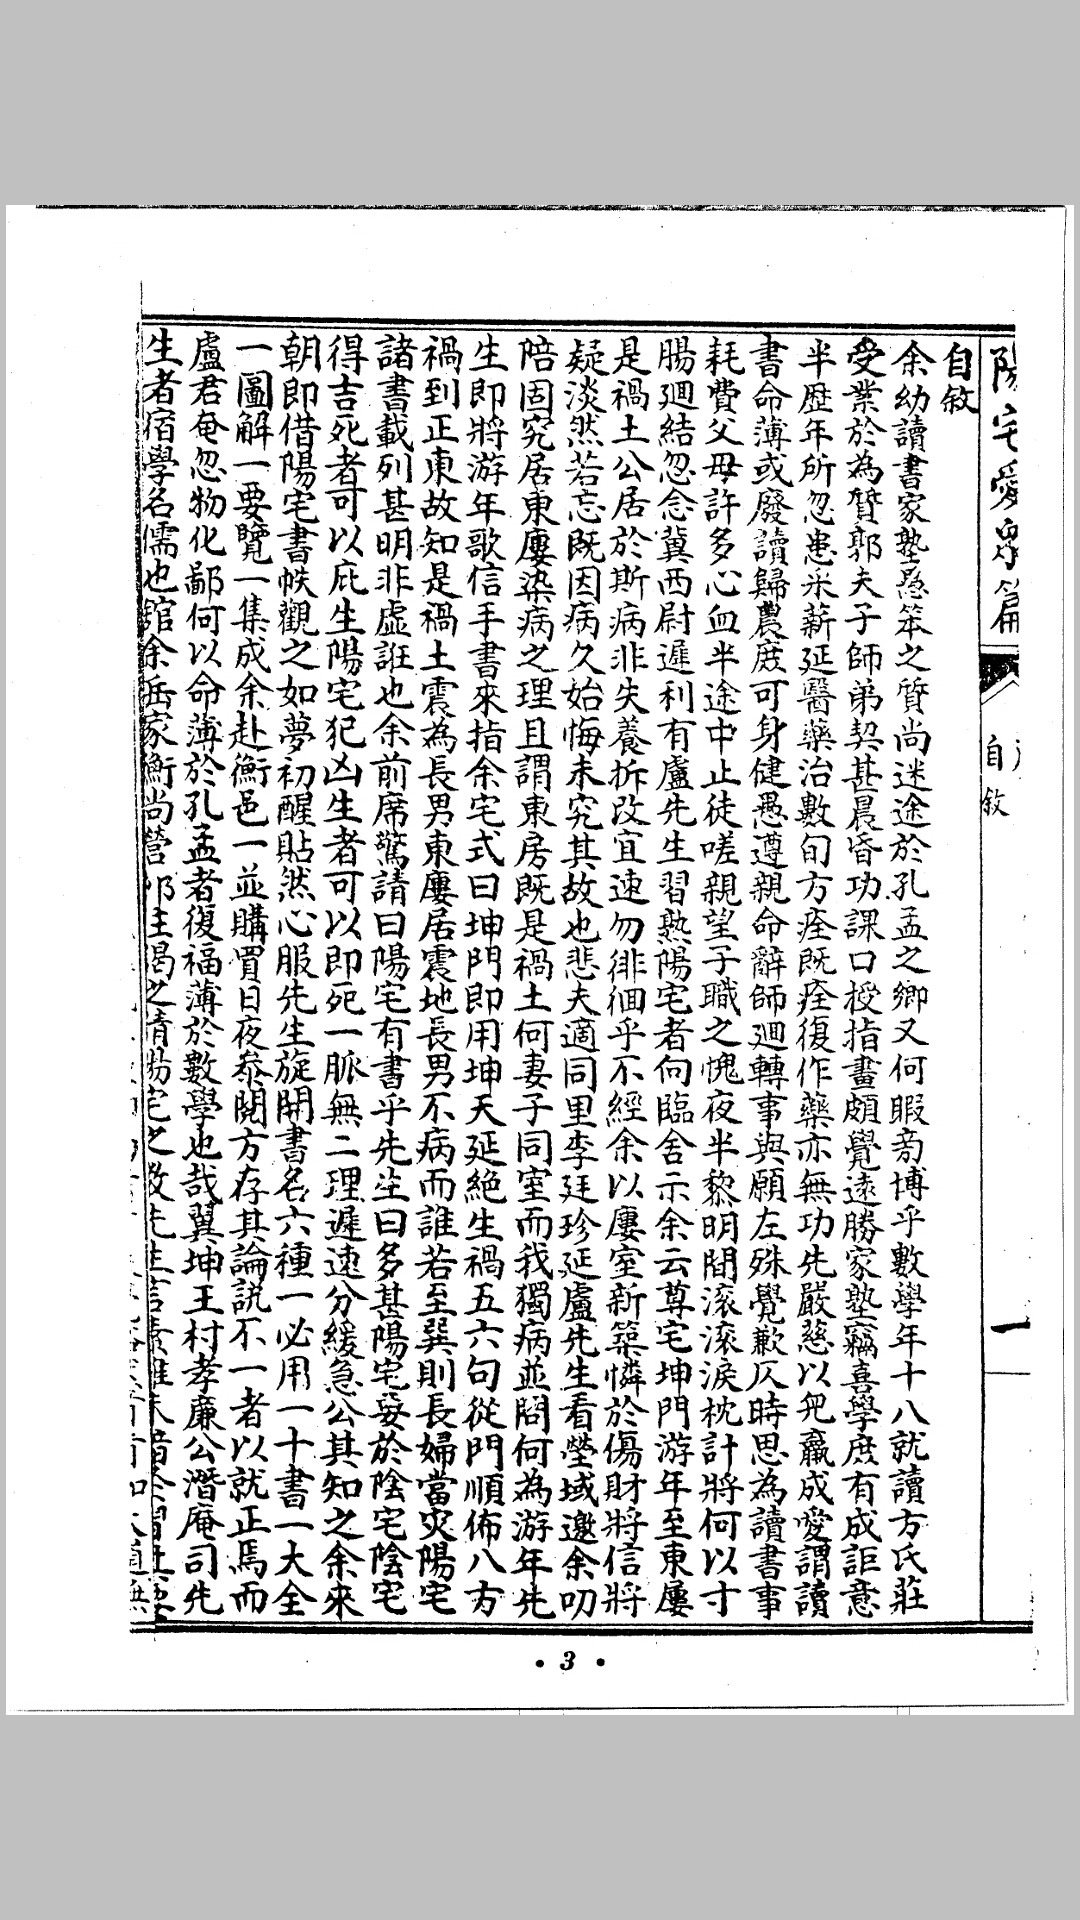 陽宅愛眾篇
自敘
一
自敘
余幼讀書家塾愚笨之質尚迷途於孔孟之鄉又何暇旁博乎數學年十八就讀方氏莊
受業於為贊郭夫子師弟契甚晨昏功課口授指畫頗覺遠勝家塾竊喜學庶有成詎意
半歷年所忽患采薪延醫藥治數旬方痊既痊復作藥亦無功先嚴慈以兜羸成愛謂讀
書命薄或廢讀歸農庶可身健愚遵親命辭師廻轉事與願左殊覺歉仄時思為讀書事
耗費父母許多心血半途中止徒嗟親望子職之愧夜半黎明間滾滾淚枕計將何以寸
腸廻結忽念冀西尉遲利有盧先生習熟陽宅者向臨舍示余云尊宅坤門游年至東屢
是禍土公居於斯病非失養拆改宜速勿徘徊乎不經余以屢室新築憐於傷財將信將
疑淡然若忘既因病久始悔未究其故也悲夫適同里李廷珍延盧先生看塋域邀余叨
陪固究居東廈染病之理且謂東房既是禍土何妻子同室而我獨病並問何為游年先
生即將游年歌信手書來指余宅式曰坤門即用坤天延絕生禍五六句從門順佈八方
禍到正東故知是禍土震為長男東廈居震地長男不病而誰若至巽則長婦當災陽宅
諸書載列甚明非虛誑也余前席驚請曰陽宅有書乎先生曰多甚陽宅妥於陰宅陰宅
得吉死者可以庇生陽宅犯凶生者可以即死一脈無二理遲速分緩急公其知之余來
朝即借陽宅書帙觀之如夢初醒貼然心服先生旋開書名六種一必用一十書一大全
一圖解一要覽一集成余赴衡邑一並購買日夜叅閱方存其論說不一者以就正焉而
盧君奄忽物化鄙何以命薄於孔孟者復福薄於數學也哉翼坤王村孝廉公潛庵司先
生者宿學名儒也舘余岳家衡尚營